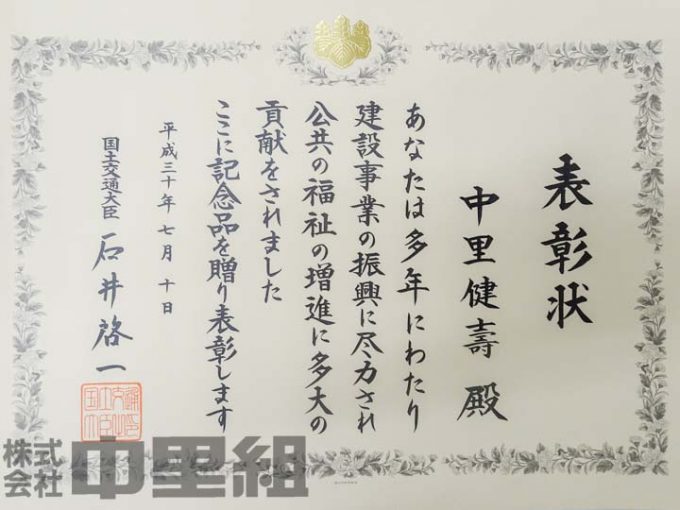 表彰状
中里健壽 殿
あなたは多年にわたり
建設事業の振興に尽力され
公共の福祉の増進に多大の
貢献をされました
ここに記念品を贈り表彰します
平成三十年七月十日
国土交通大臣 石井啓一
株式会社 中里組